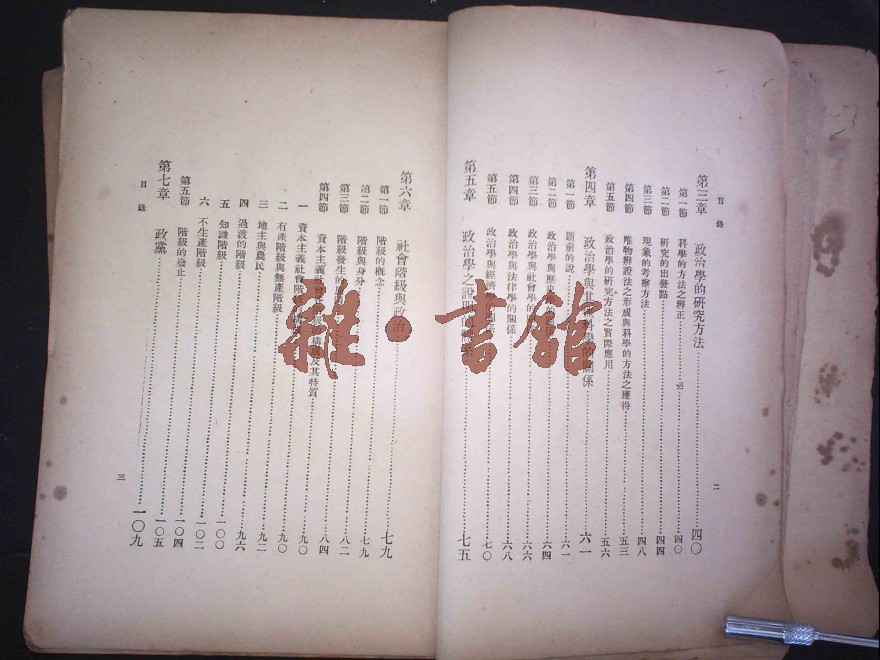 目錄
第三章 政治學的研究方法 四〇
第一節 科學的方法之辨正 四〇
第二節 研究的出發點 四四
第三節 現象的考察方法 四八
第四節 唯物辨證法之形成與科學的方法之獲得 五三
第五節 政治學的研究方法之實際應用 五六
第四章 政治學與 科學的關係 六一
第一節 題前的說 六一
第二節 政治學與歷史 六四
第三節 政治學與社會學的 六六
第四節 政治學與法律學的關係 六八
第五節 政治學與經濟 的關係 七〇
第五章 政治學之 七五
二
第六章 社會階級與政治 七九
第一節 階級的概念 七九
第二節 階級與身分 七九
第三節 階級發生的 八二
第四節 資本主義社會 構成及其特質 八四
一 資本主義社會階級 九〇
二 有產階級與無產階級 九〇
三 地主與農民 九二
四 過渡的階級 九六
五 知識階級 一〇〇
六 不生產階級 一〇二
第五節 階級的廢止 一〇四
第七章 政黨 一〇五
一〇九
目錄
三
雜·書館